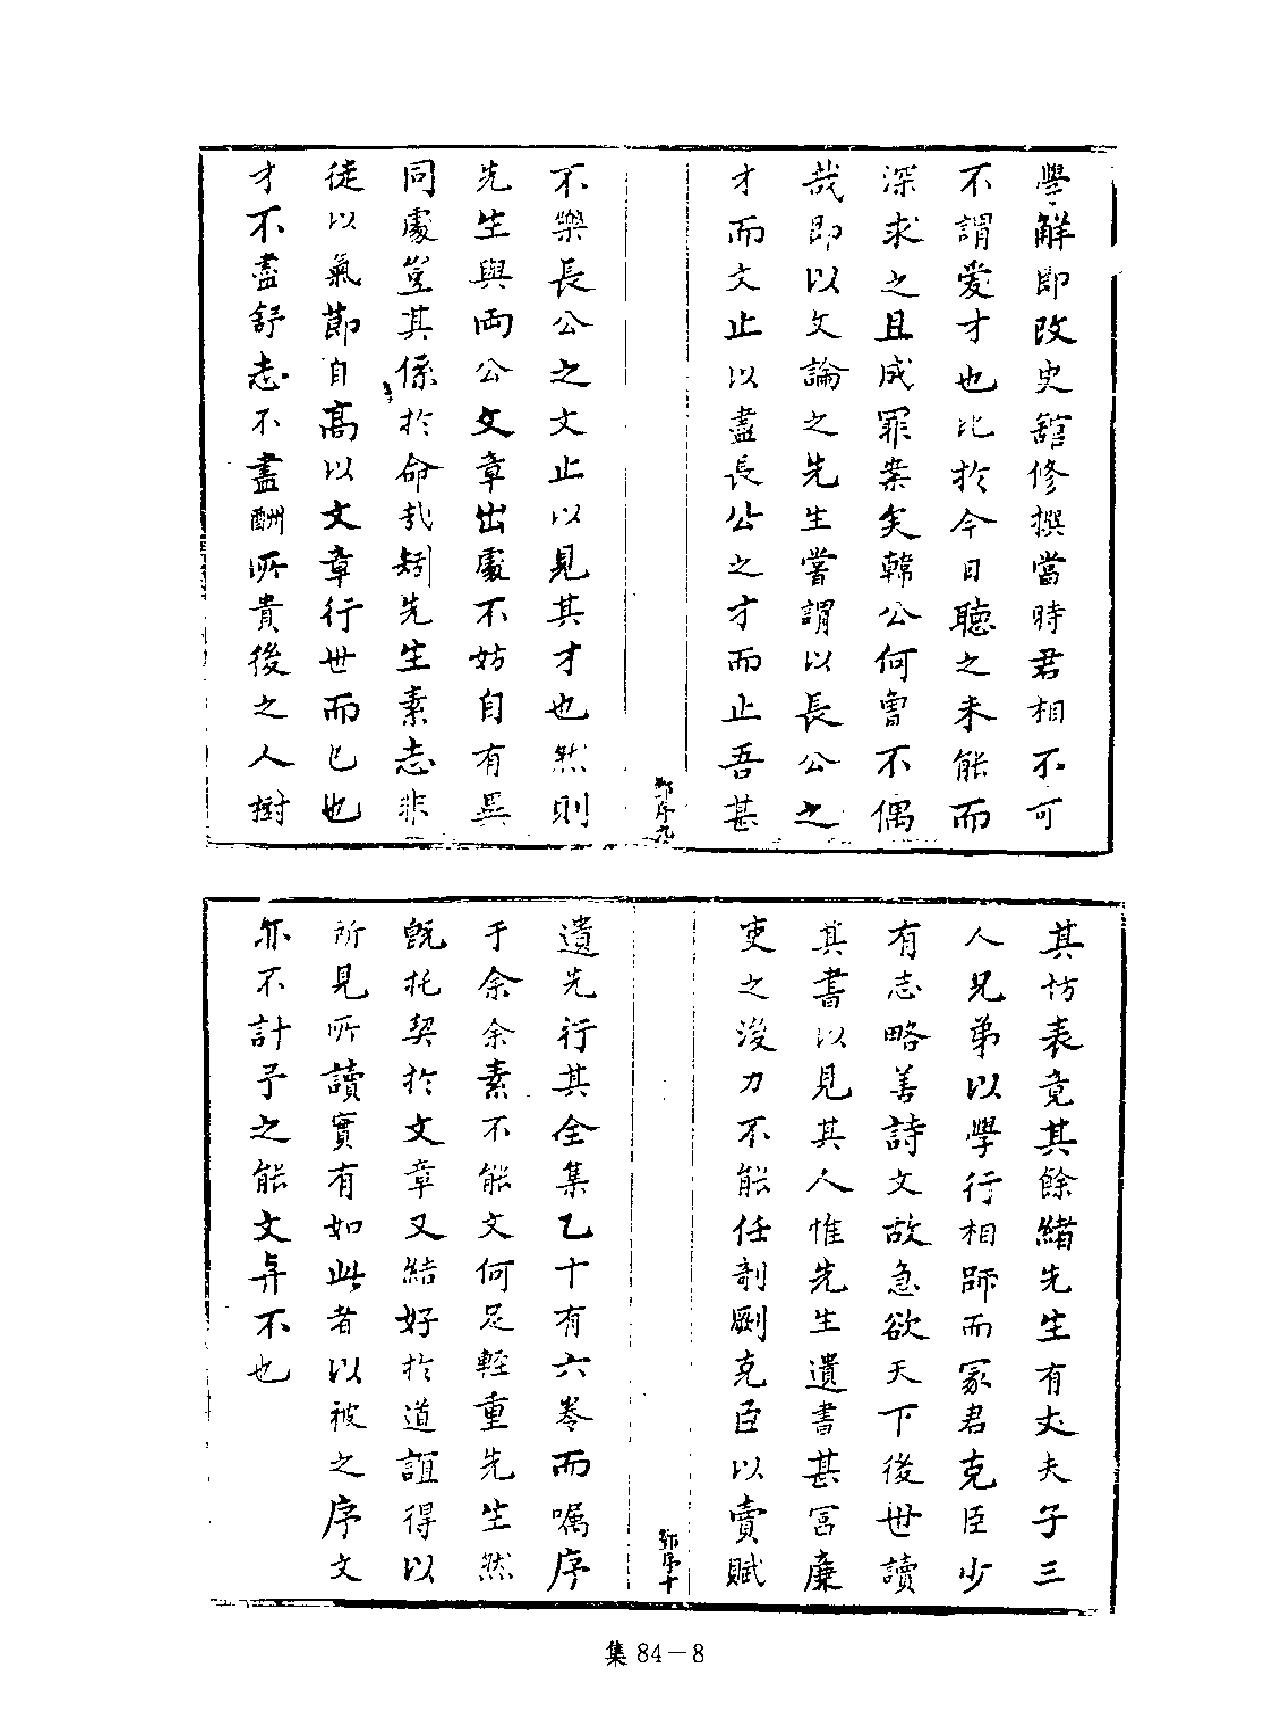 學解即改史舘修撰當時君相不可
不謂爱才也比扵今日聽之来能而
深求之且成罪案矣韓公何曾不偶
哉即以文論之先生嘗謂以長公之
才而文止以盡長公之才而止吾甚
鄒序九
不樂長公之文止以見其才也然則
先生與両公文章出處不妨自有異
同處豈其係扵命哉矧先生素志非
徒以氣節自高以文章行世而已也
才不盡舒志不盡酬所貴後之人樹
其坊表竟其餘緒先生有丈夫子三
人兄弟以學行相師而冢君克臣少
有志略善詩文故急欲天下後世讀
其書以見其人惟先生遺書甚冨廉
吏之後力不能任剞劂克臣以賣賦
鄒序十
遺先行其全集乙十有六卷而嘱序
于余余素不能文何足輕重先生然
既托契扵文章又結好扵道誼得以
所見所讀實有如此者以被之序文
亦不計予之能文與不也
集 84－8